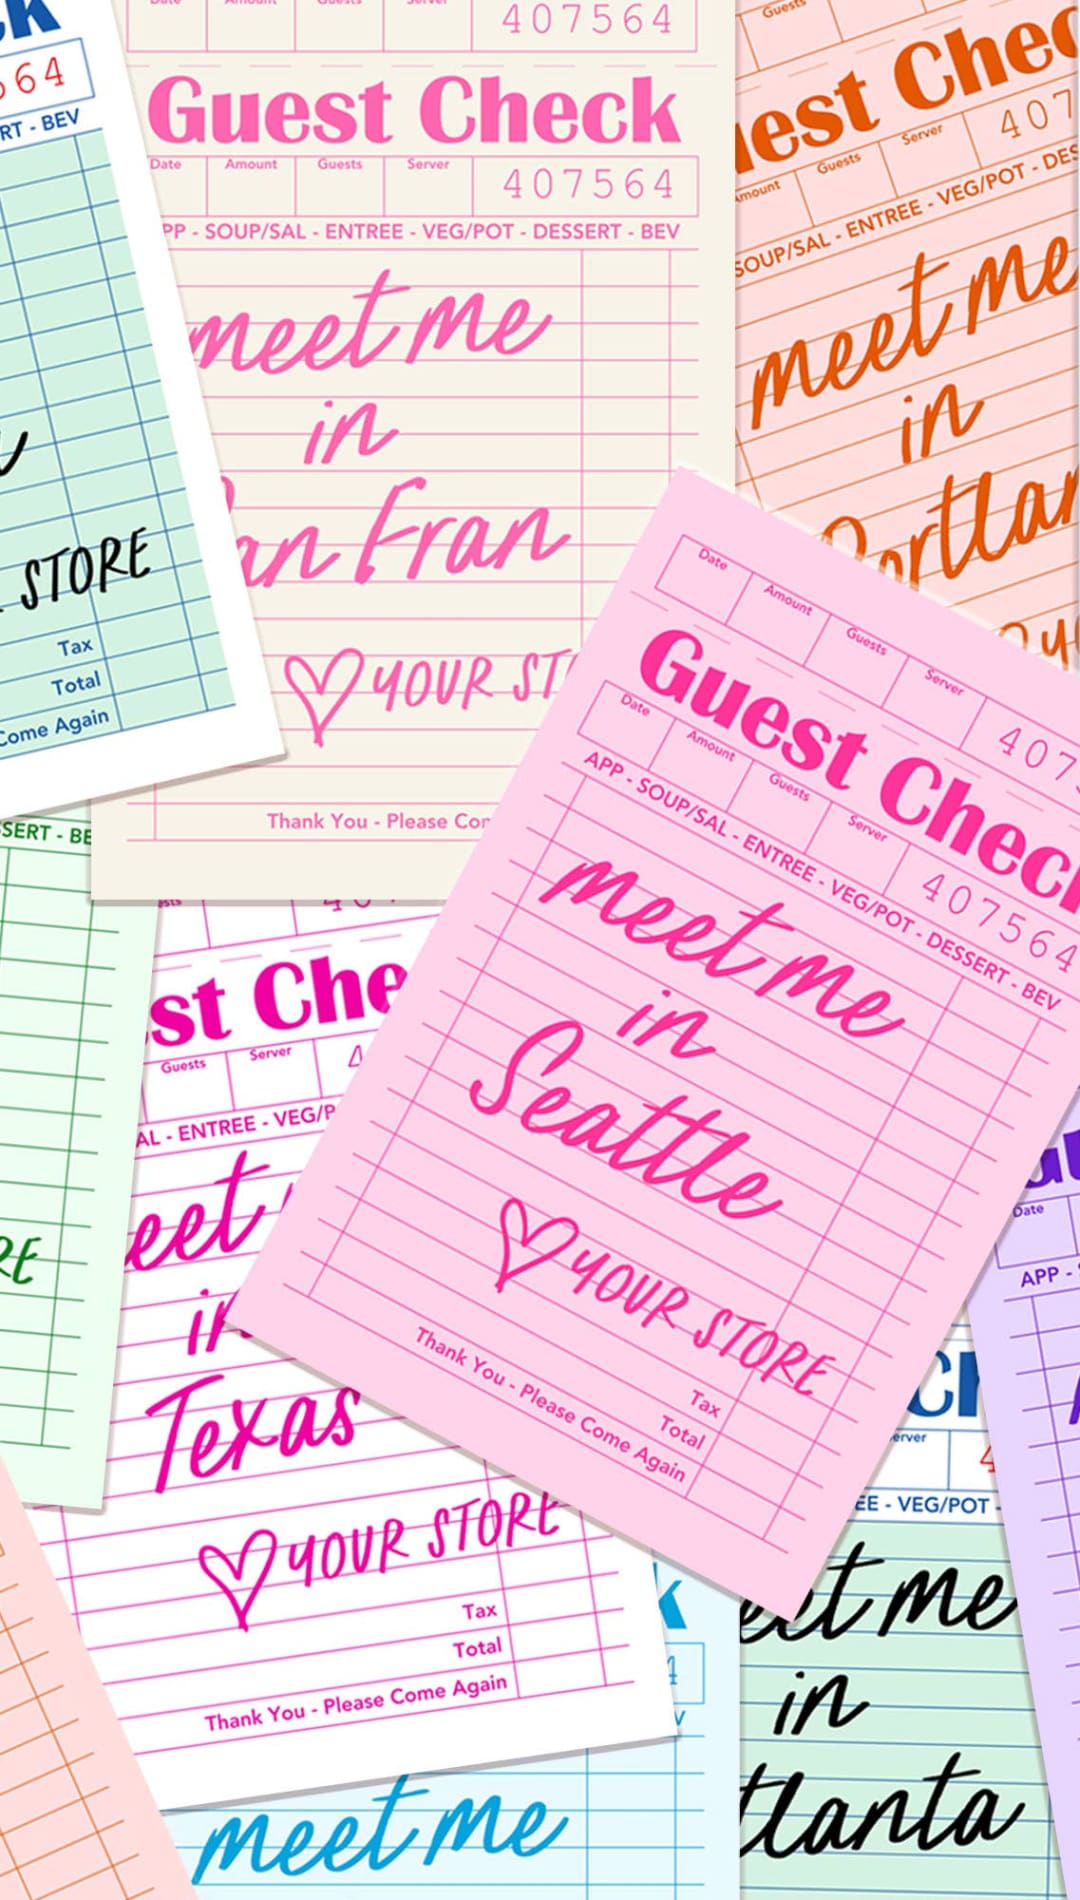 564
RT - BEV
STORE
Tax
Total
Come Again
Date Amount Guests Server 407564
Guest Check
Date Amount Guests Server 407564
PP - SOUP/SAL - ENTREE - VEG/POT - DESSERT - BEV
meet me
in
an Fran
YOUR ST
Thank You - Please Co
Guests
est Chec
mount Guests Server 407
SOUP/SAL - ENTREE - VEG/POT - DES
meet me
in
Portlan
Date Amount Guests Server 407
Guest Check
Date Amount Guests Server 407564
APP - SOUP/SAL - ENTREE - VEG/POT - DESSERT - BEV
meet me
in
Seattle
YOUR STORE
Tax
Total
Thank You - Please Come Again
SSERT - BE
RE
st Che
Guests Server 4
AL - ENTREE - VEG/P
eet
in
Texas
YOUR STORE
Tax
Total
Thank You - Please Come Again
k
4
V
meet me
Date
APP -
erver 4
EE - VEG/POT -
et me
in
tlanta